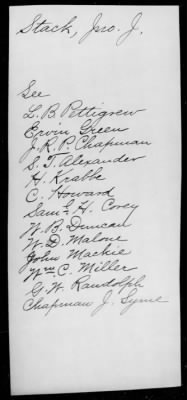 Stack, Jno. J.
See
L. B. Pettigrew
Ervin Green
J. R. P. Chapman
S. T. Alexander
H. Krabbe
C. Howard
Saml. H. Corey
W. B. Duncan
W. D. Malone
John Mackie
Wm. C. Miller
G. W. Randolph
Chapman J. Syme